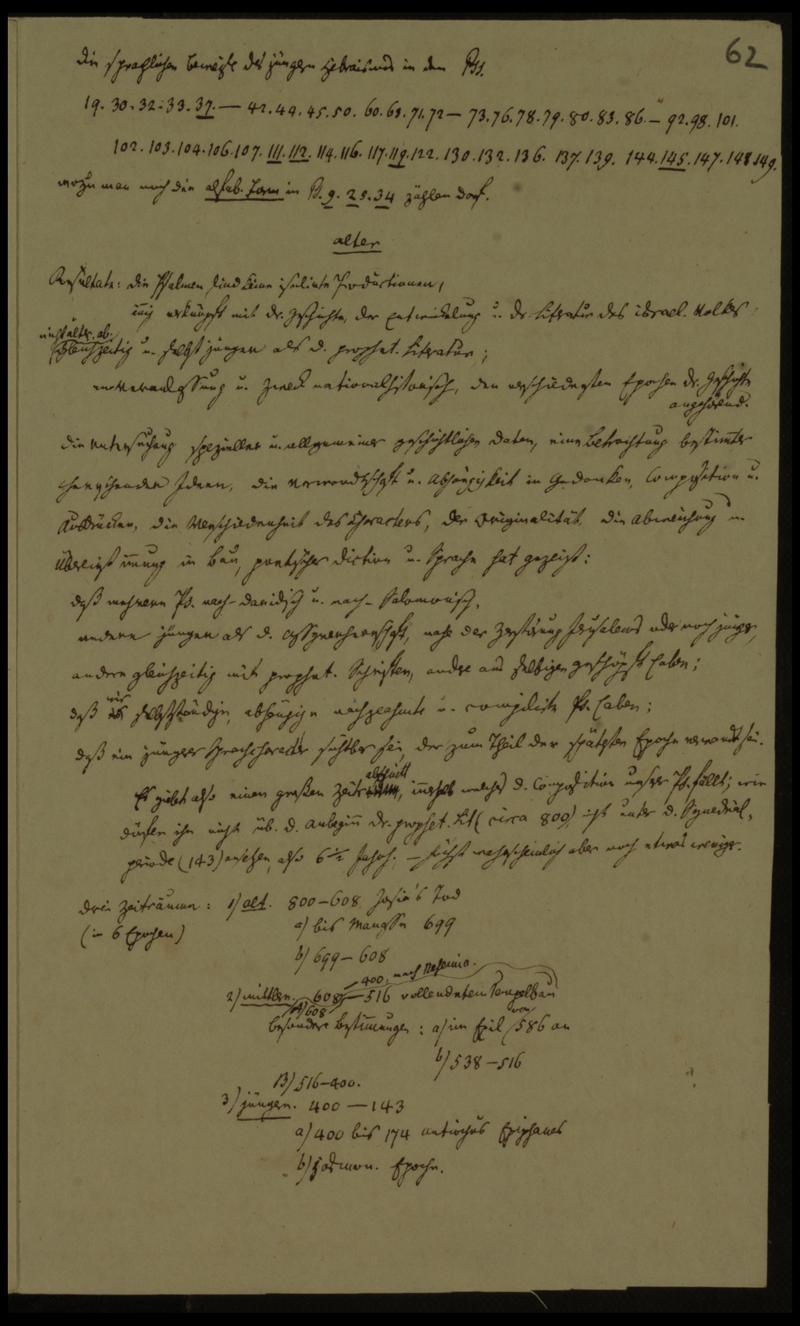 62
Die sprachlichen Beweise des jüngern Hebraismus in den Pss.
19. 30. 32. 33. 37. — 42. 44. 45. 50. 60. 68. 71. 72 — 73. 76. 78. 79. 80. 83. 86. — 92. 98. 101.
102. 103. 104. 106. 107. 111. 112. 114. 116. 117. 119. 122. 130. 132. 136. 137. 139. 144. 145. 147. 148. 149.
wozu man noch die alphab. Form in Ps. 9. 25. 34 zählen darf.
Alter
Resultate: die Psalmen sind keine isolirte Productionen,
innig verknüpft mit der Geschichte, der Entwickelung u. der Literatur des israel. Volkes
nicht älter, ab.
gleichzeitig u. selbst jünger als d. prophet. Literatur;
in Veranlassung u. Zweck nationalhistorisch, den verschiedensten Epochen der Geschichte
angehörend.
Die Untersuchung spezieller u. allgemeiner geschichtlicher Daten, eine Betrachtung bestimmter
herrschender Ideen, die Verwandtschaft u. Abhängigkeit in Gedanken, Composition u.
Ausdrücken, die Verschiedenheit des Characters, der Originalität, die Abweichung u.
Übereinstimmung in Bau, poetischer Diction u. Sprache hat gezeigt:
daß mehrere Ps. nach-davidisch u. nach-Salomonisch,
andere jünger als d. Assyrerherrschaft, nach der Zerstörung Jerusalems oder noch jünger,
andere gleichzeitig mit prophet. Schriften, andre aus selbigen geschöpft haben;
daß wir selbstständige, abhängige nachgeahmte u. compilirte Ps. haben;
daß ein jüngerer Sprachcharacter sichtbar sei, der zum Theil der spätesten Epoche verwandt sei.
Es giebt also einen großen Zeitabschnitt, innerhalb welches d. Composition unsrer Ps. fällt; wir
dürfen ihn nicht üb. d. Anbeginn der prophet. Lit (circa 800) nicht unter d. Synedrial-
periode (143) ansetzen, also 6½ Jahrh. — höchst wahrscheinlich aber noch etwas weniger.
drei Zeiträume: 1) alt. 800–608 Josia's Tod
(in 6 Epochen)
a) bis Manasse 699
b) 699–608
400, nach Nehemia.
2) mittler. 608–516 vollendeten Tempelbau
A) 608
besondere Bestimmungen: a) im Exil von 586 an
b) 538–516
B) 516–400.
3) jünger. 400–143
a) 400 bis 174 Antiochus Epiphanes
b) Hasmon. Epoche.